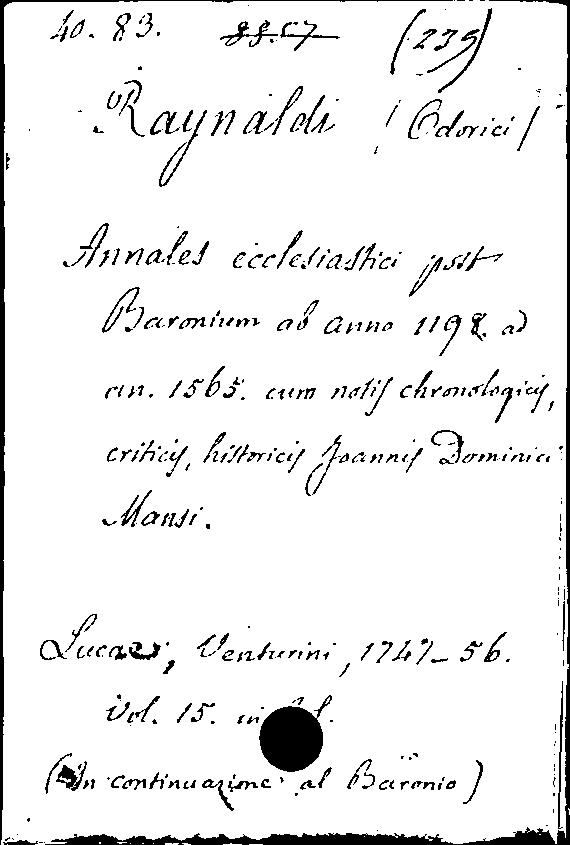 40. 83. 88.57 (235)
Raynaldi (Odorici)
Annales ecclesiastici post
Baronium ab anno 1198. ad
an. 1565. cum notis chronologicis,
criticis, historicis Joannis Dominici
Mansi.
Lucae, Venturini, 1747-56.
Vol. 15. in fol.
(In continuazione al Baronio)